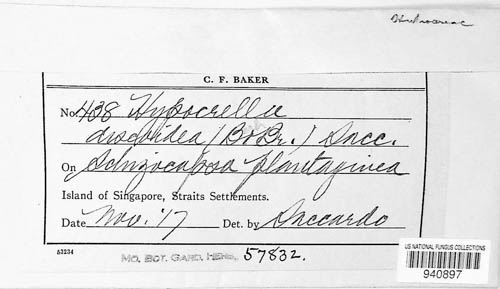 C. F. BAKER
No. 438 Hypocrella
discoidea (B&Br.) Sacc.
On Schizocapsa plantaginea
Island of Singapore, Straits Settlements.
Date Nov. '17 Det. by Saccardo
63234
MO. BOT. GARD. HERB. 57832.
US NATIONAL FUNGUS COLLECTIONS
940897